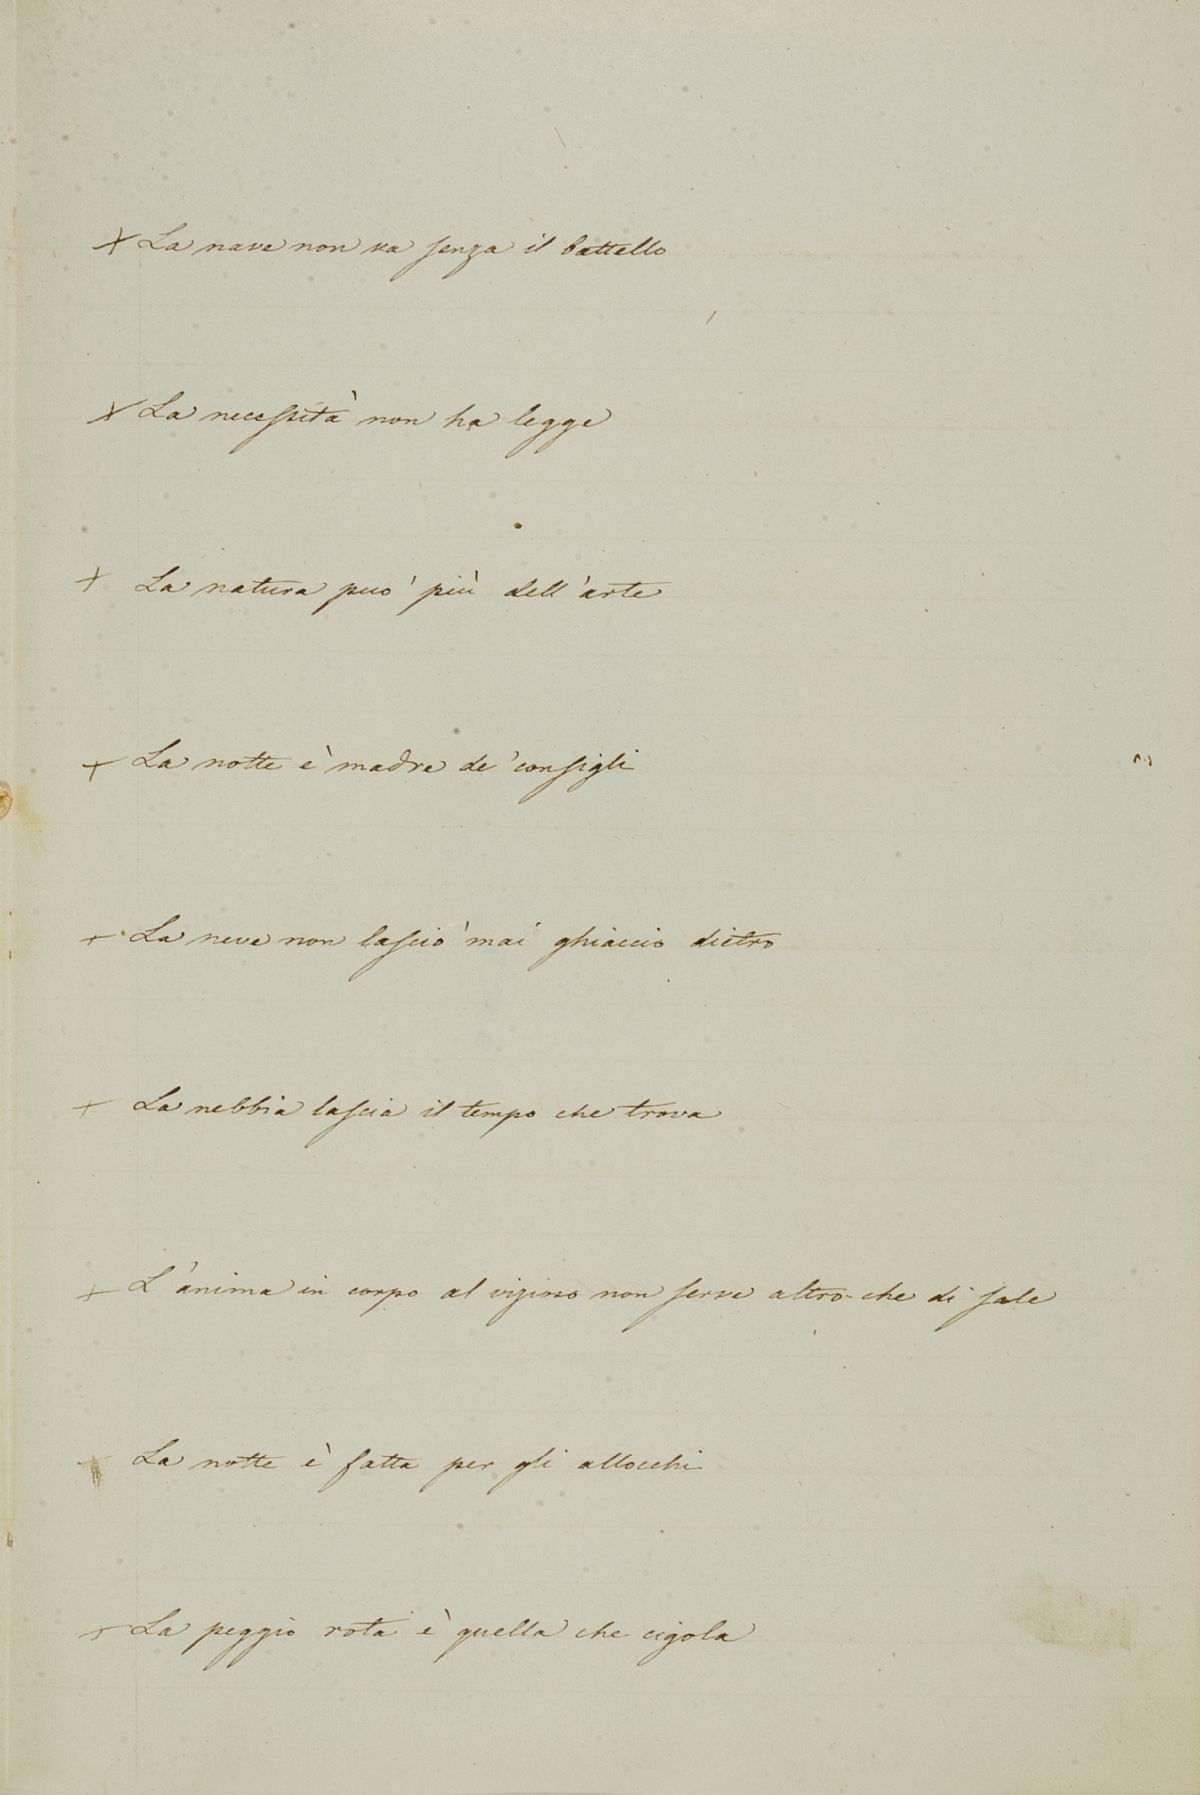 + La nave non va senza il battello
+ La necessità non ha legge
+ La natura può più dell'arte
+ La notte è madre de' consigli
+ La neve non lasciò mai ghiaccio dietro
+ La nebbia lascia il tempo che trova
+ L'anima in corpo al non serve altro che di sale
+ La notte è fatta per gli allocchi
+ La peggio rota è quella che cigola